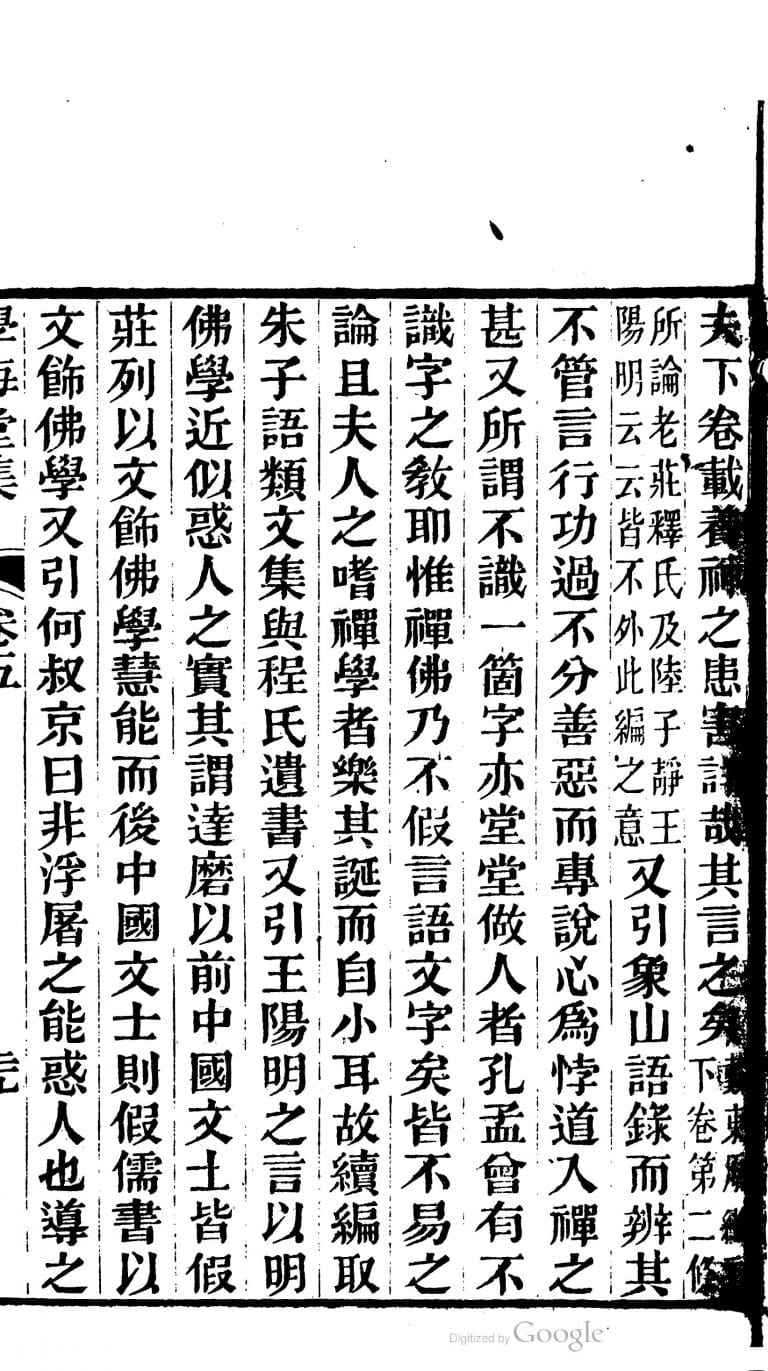 夫下卷載養神之患害詳哉其言之矣下卷第二條
所論老莊釋氏及陸子靜王
陽明云云皆不外此編之意又引象山語錄而辨其
不管言行功過不分善惡而專說心爲悖道入禪之
甚又所謂不識一箇字亦堂堂做人者孔孟曾有不
識字之教耶惟禪佛乃不假言語文字矣皆不易之
論且夫人之嗜禪學者樂其誕而自小耳故續編取
朱子語類文集與程氏遺書又引王陽明之言以明
佛學近似惑人之實其謂達磨以前中國文士皆假
莊列以文飾佛學慧能而後中國文士則假儒書以
文飾佛學又引何叔京曰非浮屠之能惑人也導之
學海堂集
卷五
Digitized by Google